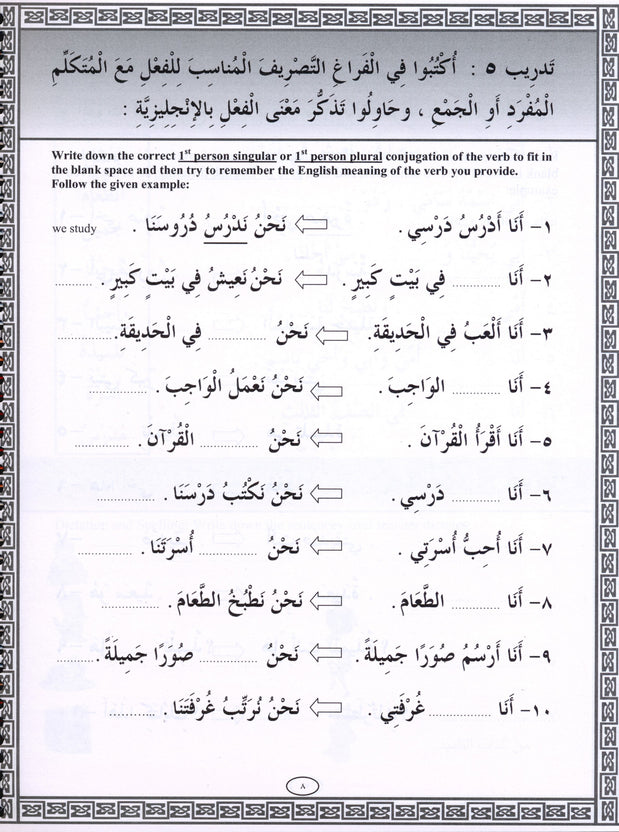 تَدريب ٥ : أُكْتُبُوا فِي الْفَراغِ التَّصْرِيفَ الْمُناسِبَ لِلْفِعْلِ مَعَ الْمُتَكَلِّمِ
الْمُفْرَدِ أَوِ الْجَمْعِ ، وَحَاوِلُوا تَذَكُّرَ مَعْنَى الْفِعْلِ بِالإِنْجْلِيزِيَّةِ :
Write down the correct 1st person singular or 1st person plural conjugation of the verb to fit in
the blank space and then try to remember the English meaning of the verb you provide.
Follow the given example:
١- أَنَا أَدْرُسُ دَرْسِي. ⇦ نَحْنُ نَدْرُسُ دُرُوسَنَا . we study
٢- أَنَا .......... فِي بَيْتٍ كَبِيرٍ . ⇦ نَحْنُ نَعِيشُ فِي بَيْتٍ كَبِيرٍ . ..........
٣- أَنَا أَلْعَبُ فِي الْحَدِيقَةِ. ⇦ نَحْنُ .......... فِي الْحَدِيقَةِ. ..........
٤- أَنَا .......... الوَاجِبَ. ⇦ نَحْنُ نَعْمَلُ الْوَاجِبَ . ..........
٥- أَنَا أَقْرَأُ الْقُرْآنَ . ⇦ نَحْنُ .......... الْقُرْآنَ. ..........
٦- أَنَا .......... دَرْسِي. ⇦ نَحْنُ نَكْتُبُ دَرْسَنَا . ..........
٧- أَنَا أُحِبُّ أُسْرَتِي . ⇦ نَحْنُ .......... أُسْرَتَنَا . ..........
٨- أَنَا .......... الطَّعَامَ. ⇦ نَحْنُ نَطْبُخُ الطَّعَامَ. ..........
٩- أَنَا أَرْسُمُ صُوَرًا جَمِيلَةً. ⇦ نَحْنُ .......... صُوَرًا جَمِيلَةً. ..........
١٠- أَنَا .......... غُرْفَتِي . ⇦ نَحْنُ نُرَتِّبُ غُرْفَتَنَا . ..........
٨